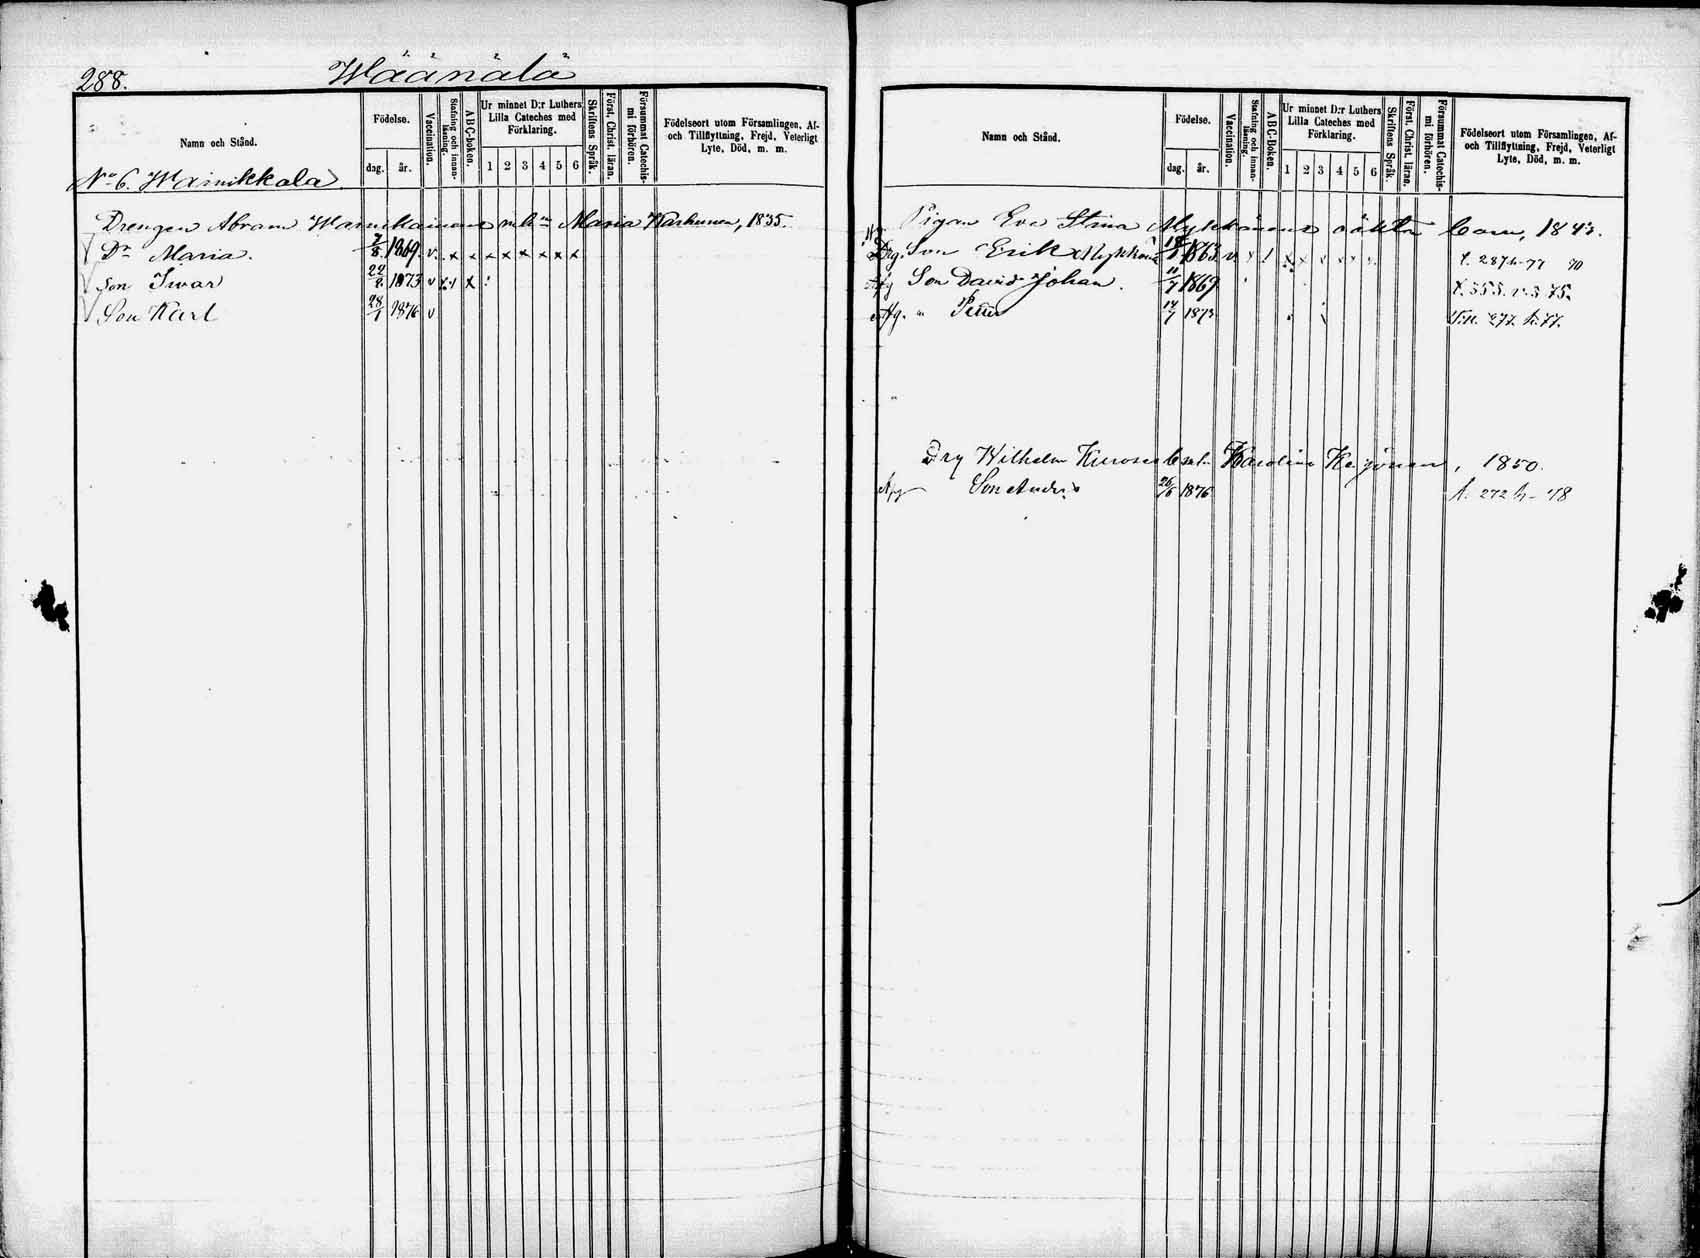 288.
Wäänälä
Namn och Stånd.
Födelse.
dag. år.
Vaccination.
Stafning och innanläsning.
ABC-Boken.
Ur minnet D:r Luthers Lilla Cateches med Förklaring.
1 2 3 4 5 6
Skriftens Språk.
Först. Christ. läran.
Försummat Catechismi förhören.
Födelseort utom Församlingen, Af- och Tillflyttning, Frejd, Veterligt Lyte, Död, m. m.
No 6. Wainikkala
Drengen Abram Wainikainens m. h:n Maria Karhunen, 1835.
Dr Maria. 7/8 1869. v. x x x x x x x x
Son Iwar 22/2 1873 v x x x
Son Karl 28/1 1876 v
Namn och Stånd.
Födelse.
dag. år.
Vaccination.
Stafning och innanläsning.
ABC-Boken.
Ur minnet D:r Luthers Lilla Cateches med Förklaring.
1 2 3 4 5 6
Skriftens Språk.
Först. Christ. läran.
Försummat Catechismi förhören.
Födelseort utom Församlingen, Af- och Tillflyttning, Frejd, Veterligt Lyte, Död, m. m.
Pigan Eva Stina Mykkänens oäkta barn, 1843.
Son Erik Mykkänen 1863 v
Son David Johan. 11/7 1869
" Petter 14/7 1873
Drg Wilhelm Kurosen Karolina Keijonen, 1850.
Son Anders 26/6 1876. 272 78